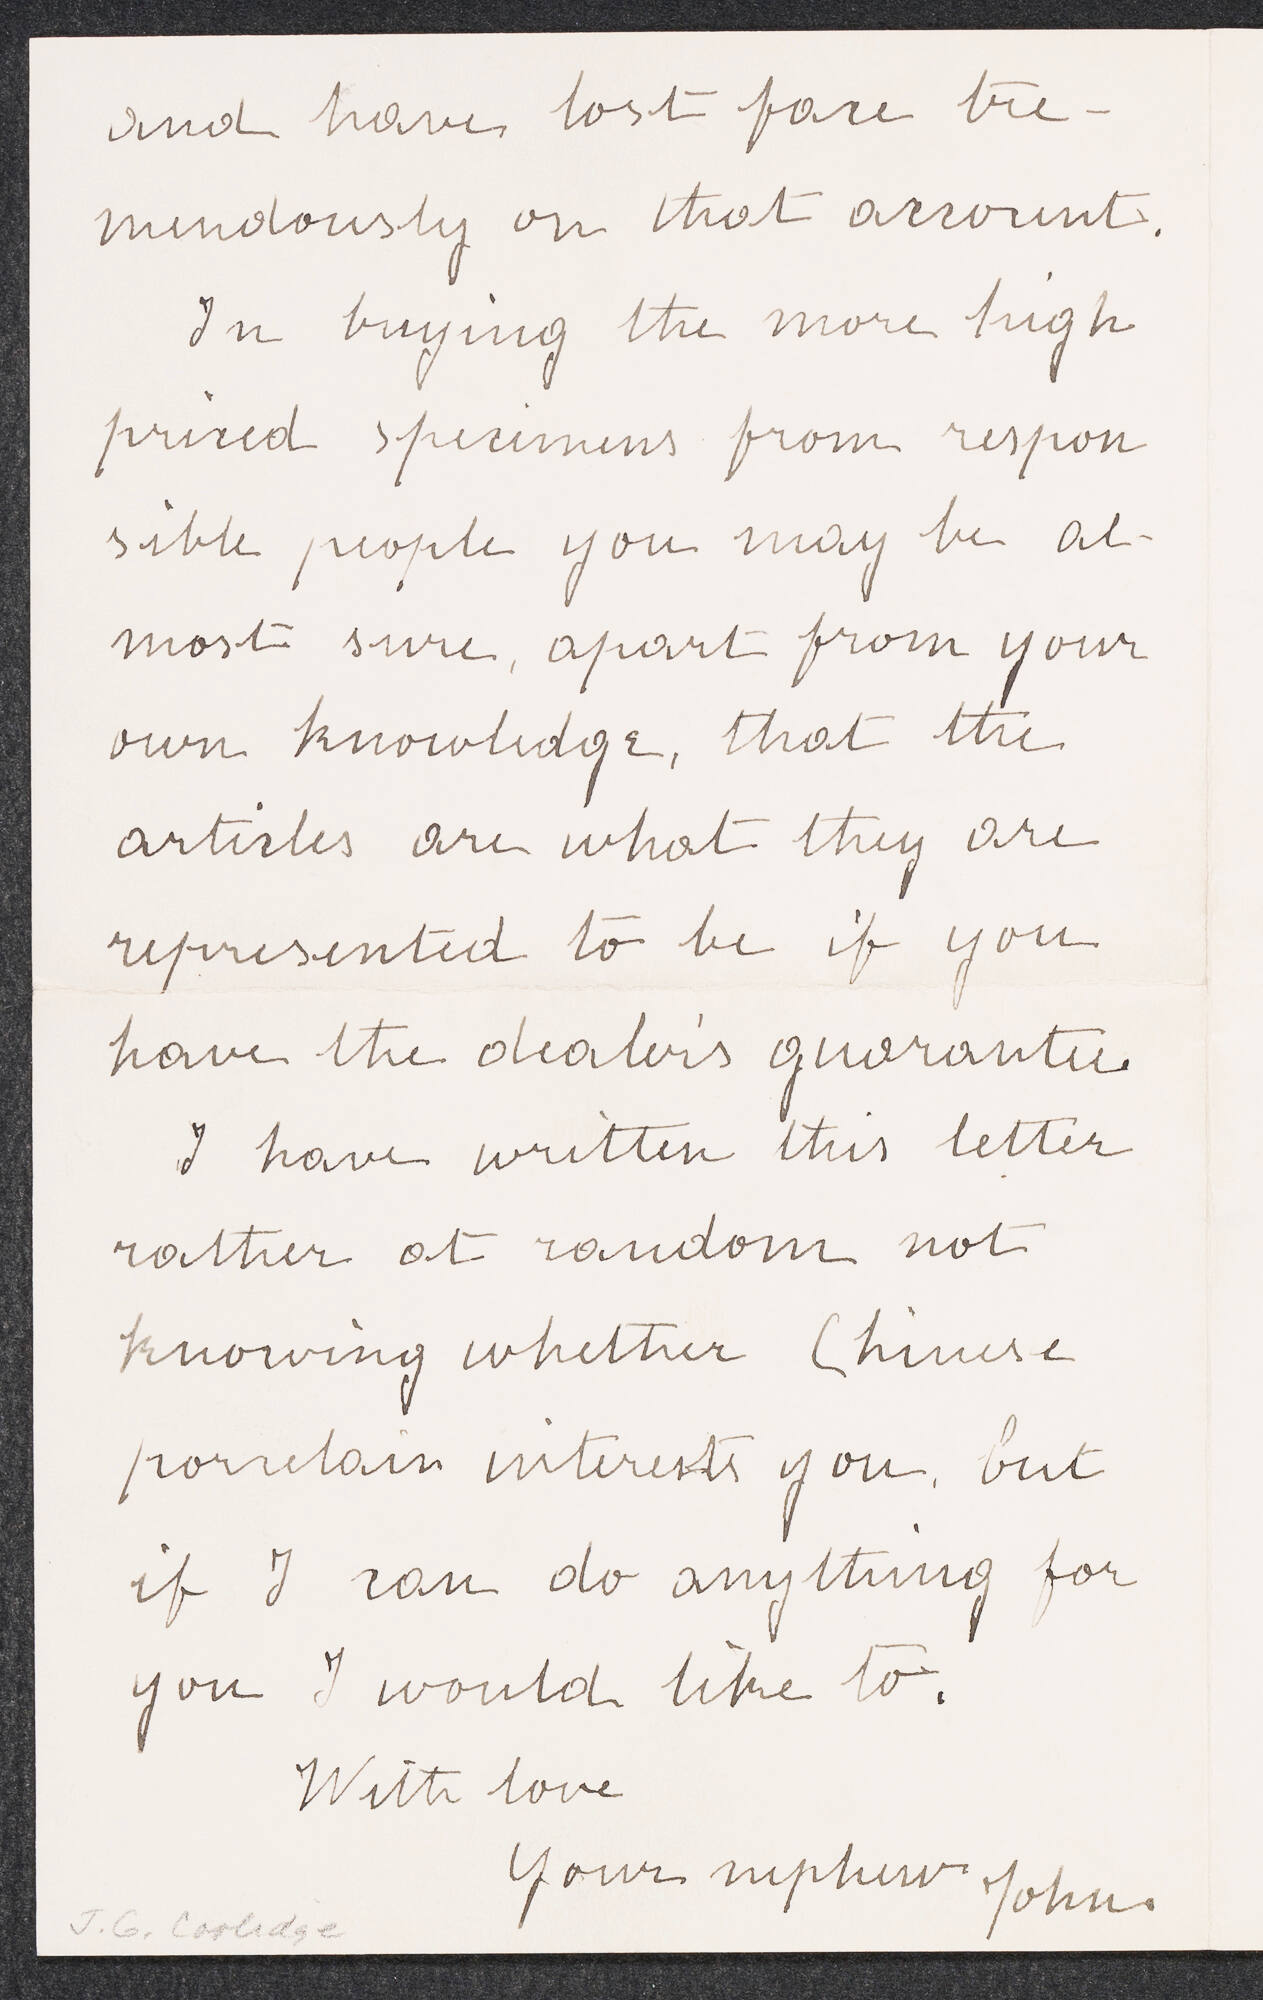 and have lost face tre-
mendously on that account.
In buying the more high
priced specimens from respon
sible people you may be al-
most sure, apart from your
own knowledge, that the
articles are what they are
represented to be if you
have the dealer's guarantee.
I have written this letter
rather at random not
knowing whether Chinese
porcelain interests you, but
if I can do anything for
you I would like to.
With love
Your nephew John.
J. G. Coolidge